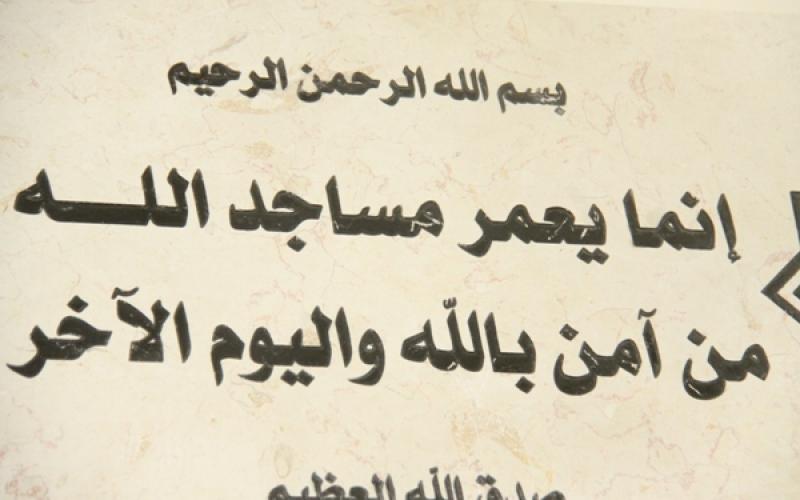 بسم الله الرحمن الرحيم
إنما يعمر مساجد اللـــه
من آمن باللّه واليوم الآخر
صدق اللّه العظيم